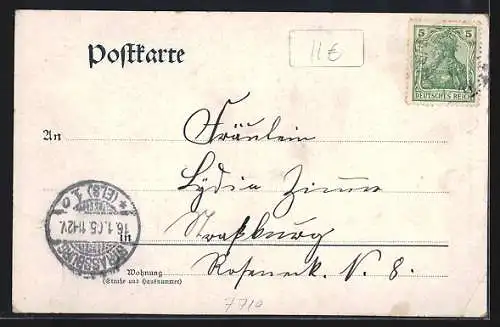 Postkarte
11€
5 5
DEUTSCHES REICH
An
Fräulein
Lydia Zimmer
in Straßburg
Roseneck. N. 8.
Wohnung
(Straße und Hausnummer)
STRASSBURG
16.1.05. 11-12V.
* (ELS) 1. o
7710